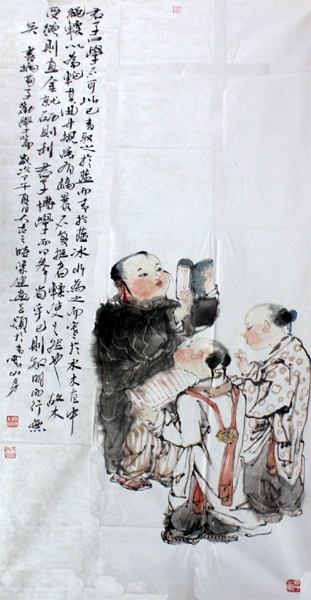 君子曰學不可以已青取之於藍而青於藍冰水為之而寒於水木直中
繩輮以為輪其曲中規雖有槁暴不復挺者輮使之然也故木
受繩則直金就礪則利君子博學而日參省乎己則知明而行無
矣 書摘荀子勸學篇 歲次甲午 月大吉之時梁健